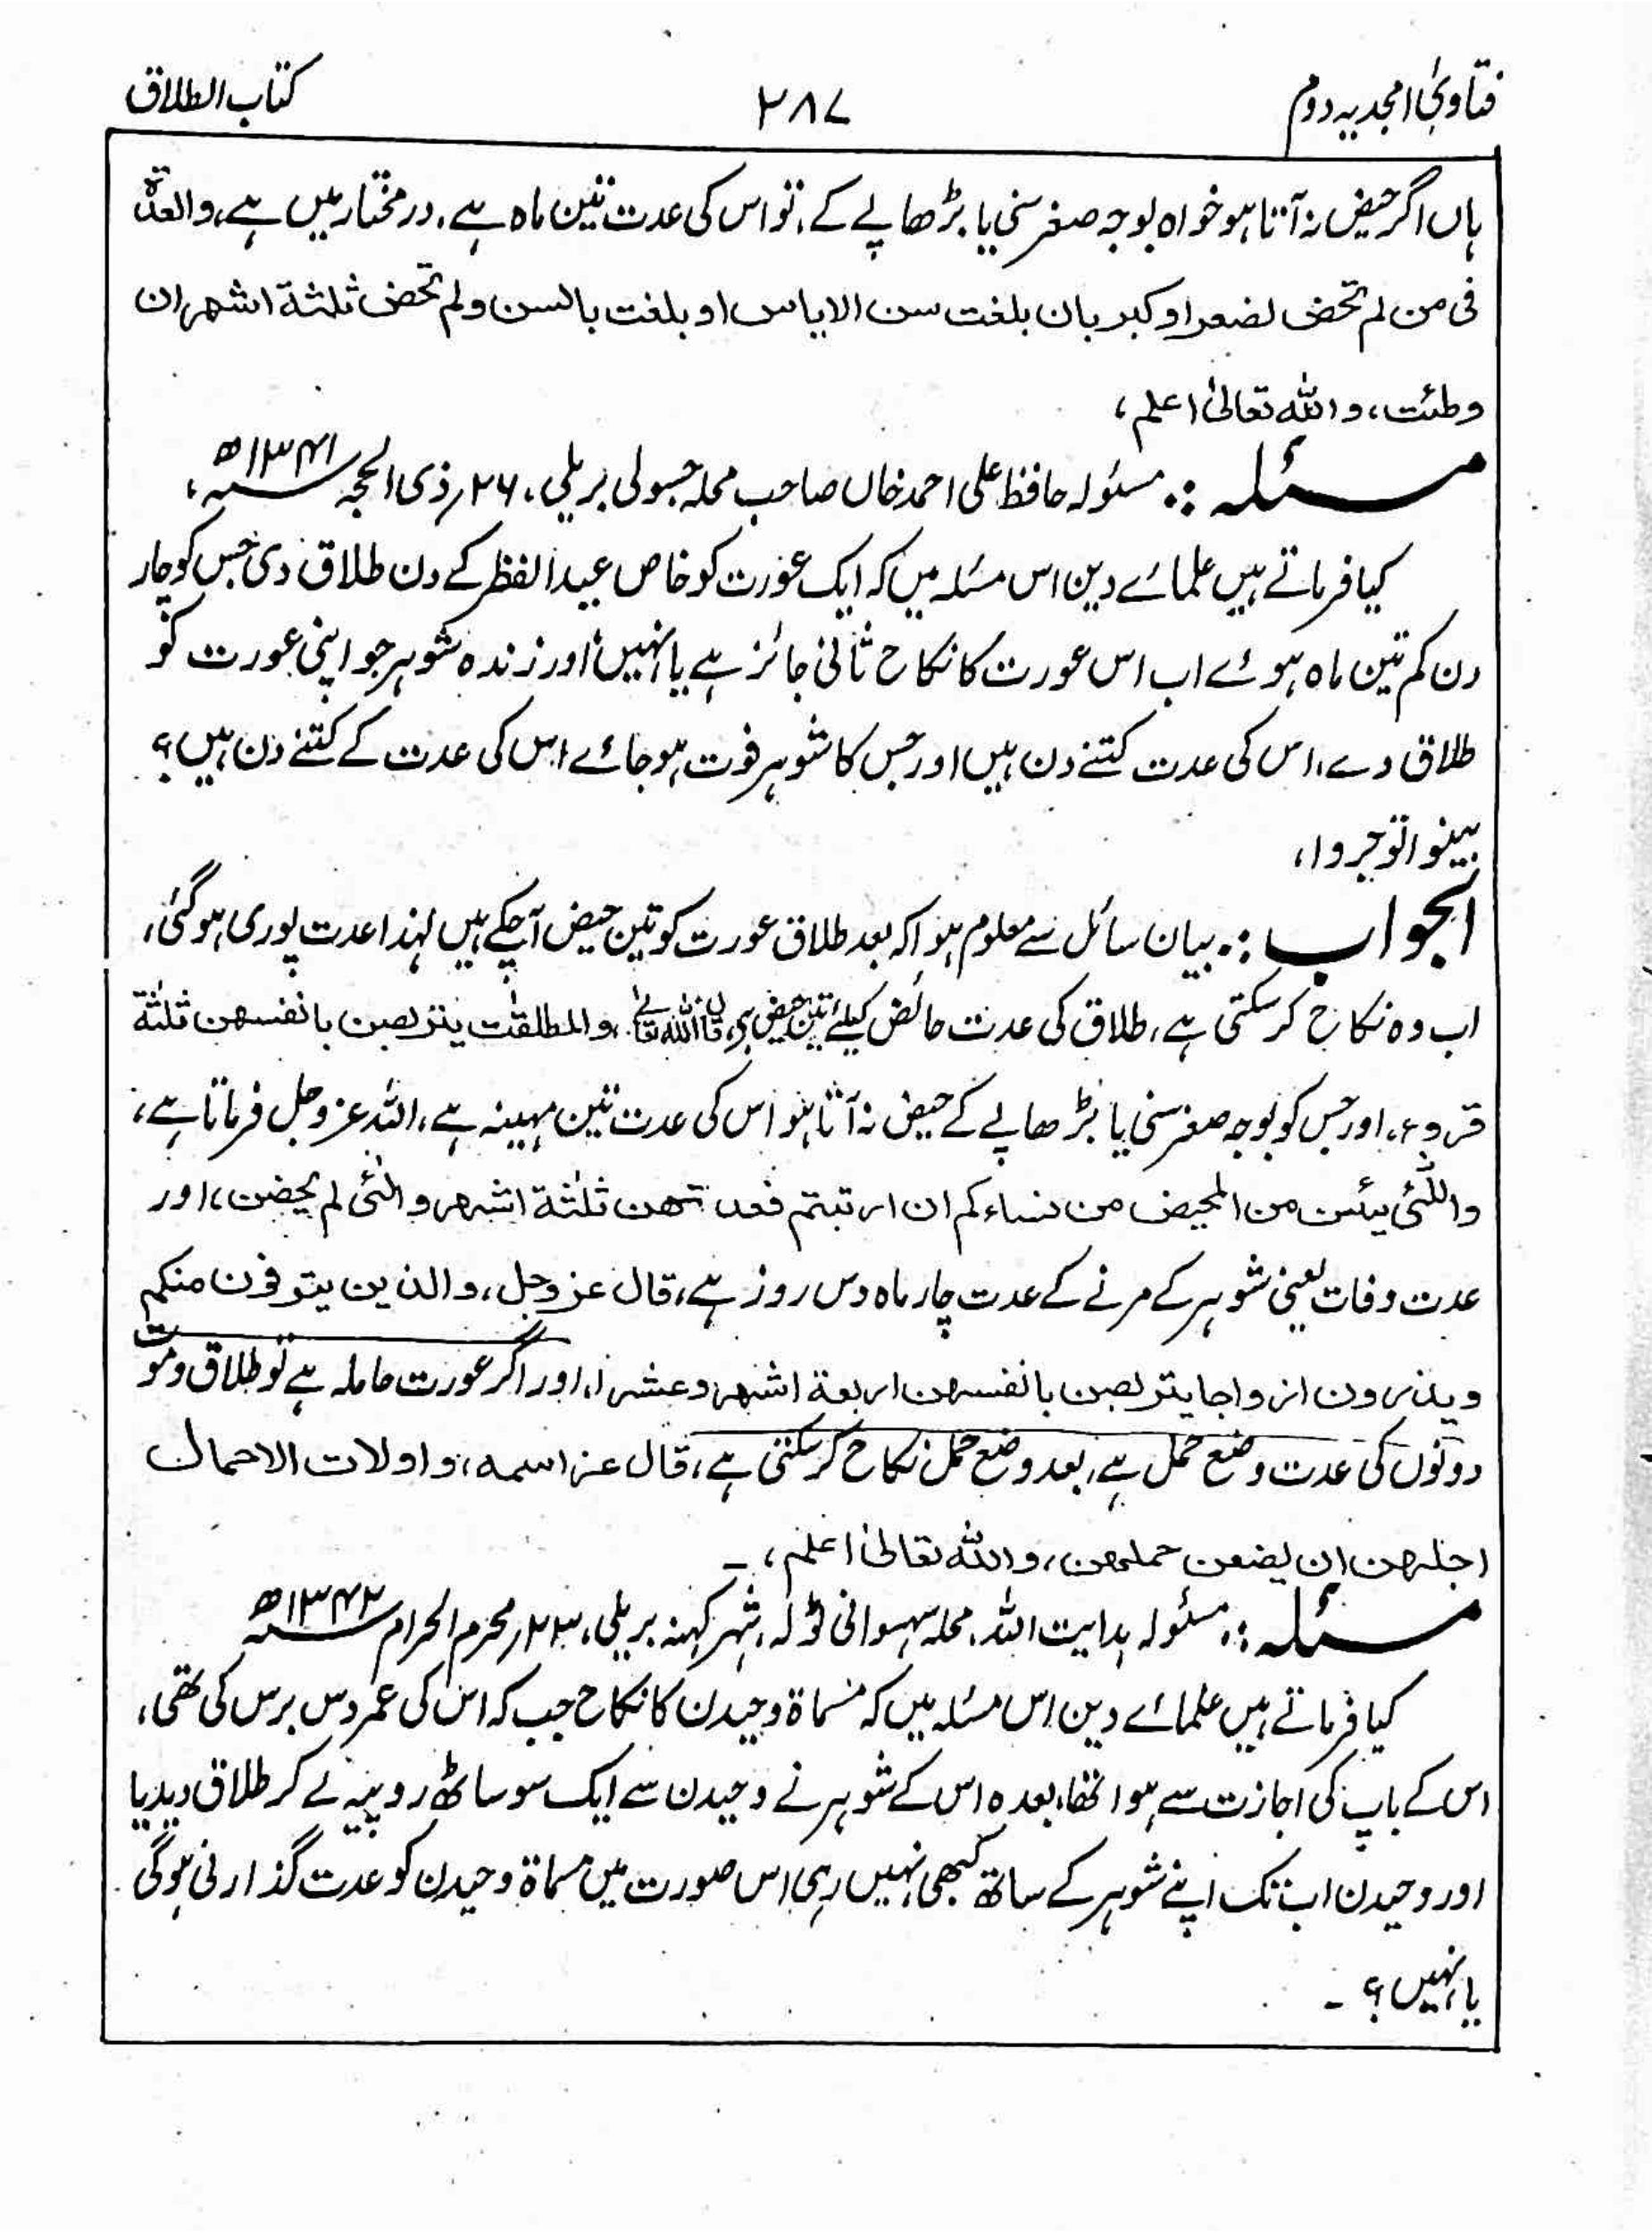 فتاویٰ امجدیہ دوم ۲۸۷ کتاب الطلاق
ہاں اگر حیض نہ آتا ہو خواہ بوجہ صغر سنی یا بڑھاپے کے، تو اس کی عدت تین ماہ ہے، در مختار میں ہے، والعدۃ
فی من لم تحض لصغر او کبر بان بلغت سن الایاس او بلغت بالسن ولم تحض ثلثۃ اشہر ان
وطئت، واللہ تعالیٰ اعلم،
مسئلہ :۔ مسئولہ حافظ علی احمد خاں صاحب محلہ جسولی بریلی، ۲۶؍ ذی الحجہ ۱۳۴۱ھ،
کیا فرماتے ہیں علمائے دین اس مسئلہ میں کہ ایک عورت کو خاص عید الفطر کے دن طلاق دی جس کو چار
دن کم تین ماہ ہوئے اب اس عورت کا نکاح ثانی جائز ہے یا نہیں اور زندہ شوہر جو اپنی عورت کو
طلاق دے، اس کی عدت کتنے دن ہیں اور جس کا شوہر فوت ہو جائے اس کی عدت کے کتنے دن ہیں؟
بینوا توجروا،
الجواب :۔ بیان سائل سے معلوم ہوا کہ بعد طلاق عورت کو تین حیض آچکے ہیں لہٰذا عدت پوری ہوگئی،
اب وہ نکاح کر سکتی ہے، طلاق کی عدت حائض کیلئے تین حیض ہیں، قال اللہ تعالیٰ، والمطلقٰت یتربصن بانفسہن ثلٰثۃ
قروء، اور جس کو بوجہ صغر سنی یا بڑھاپے کے حیض نہ آتا ہو اس کی عدت تین مہینہ ہے، اللہ عز وجل فرماتا ہے،
واللّٰئی یئسن من المحیض من نساءکم ان ارتبتم فعدتھن ثلٰثۃ اشہر والّٰئی لم یحضن، اور
عدت وفات یعنی شوہر کے مرنے کے عدت چار ماہ دس روز ہے، قال عز وجل، والذین یتوفون منکم
ویذرون ازواجا یتربصن بانفسہن اربعۃ اشہر وعشرا، اور اگر عورت حاملہ ہے تو طلاق و موت
دونوں کی عدت وضع حمل ہے، بعد وضع حمل نکاح کر سکتی ہے، قال عز اسمہ، واولات الاحمال
اجلہن ان یضعن حملہن، واللہ تعالیٰ اعلم، ۔
مسئلہ :۔ مسئولہ ہدایت اللہ، محلہ سہسوانی ٹولہ، شہر کہنہ بریلی، ۲۳؍ محرم الحرام ۱۳۴۲ھ
کیا فرماتے ہیں علمائے دین اس مسئلہ میں کہ مسماۃ وحیدن کا نکاح جب کہ اس کی عمر دس برس کی تھی،
اس کے باپ کی اجازت سے ہوا تھا، بعدہ اس کے شوہر نے وحیدن سے ایک سو ساٹھ روپیہ لے کر طلاق دیدیا
اور وحیدن اب تک اپنے شوہر کے ساتھ کبھی نہیں رہی اس صورت میں مسماۃ وحیدن کو عدت گذارنی ہوگی
یا نہیں؟ ۔